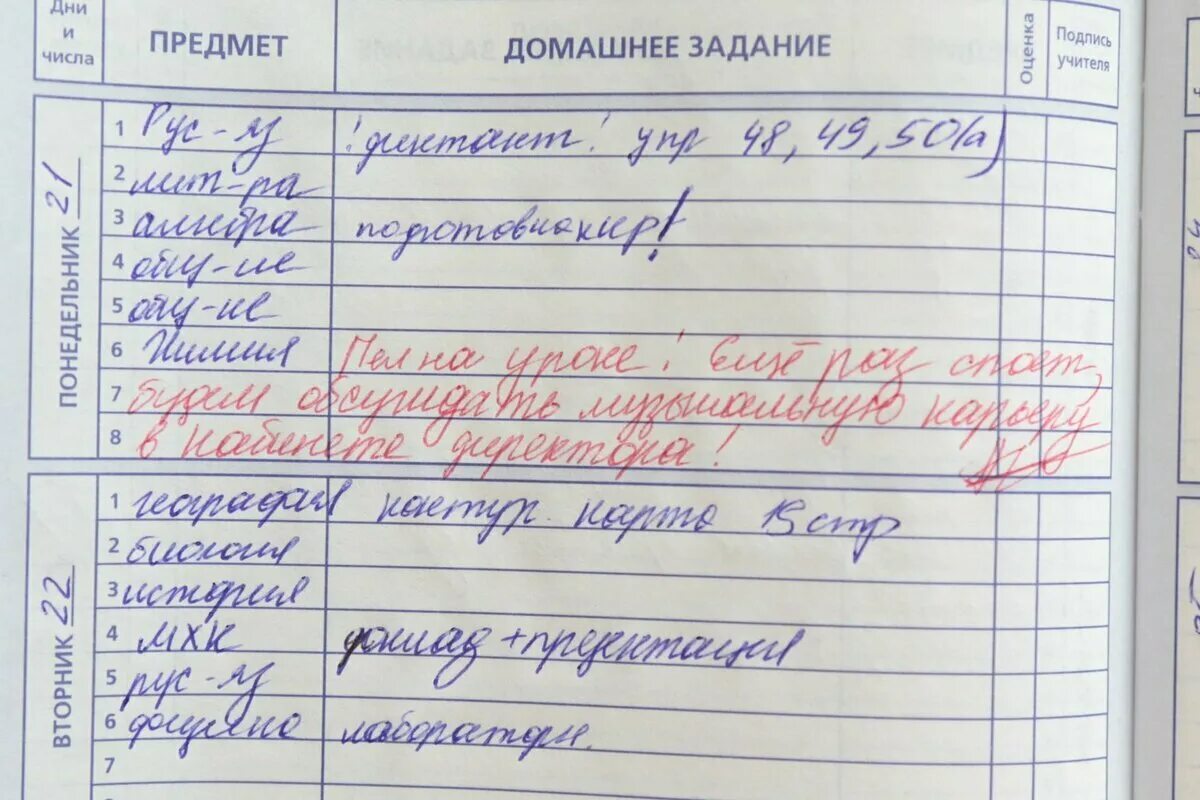 Дни
и
числа
ПРЕДМЕТ
ДОМАШНЕЕ ЗАДАНИЕ
Оценка
Подпись
учителя
ПОНЕДЕЛЬНИК 21
1 Рус-яз !диктант! упр 48, 49, 50(а)
2 лит-ра
3 алгебра подготовка к кр!
4 общ-ие
5 общ-ие
6 Химия Пел на уроке! Ещё раз споёт,
7 будем обсуждать музыкальную карьеру
8 в кабинете директора!
ВТОРНИК 22
1 география контур. карта 15 стр
2 биология
3 история
4 МХК доклад + презентация
5 рус-яз
6 физика лаборатори.
7